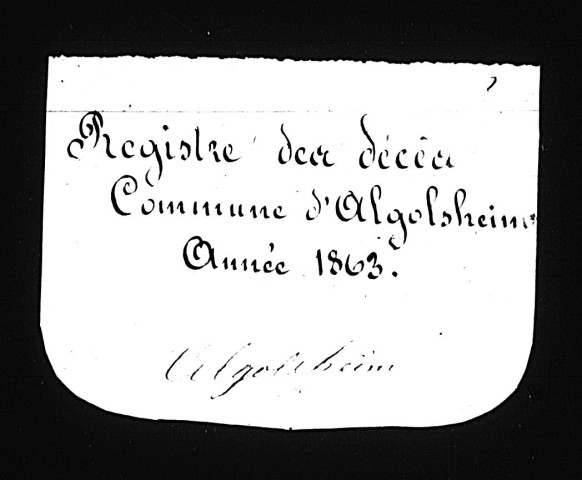 Registre des décès
Commune d'Algolsheim
Année 1863.
Algolsheim